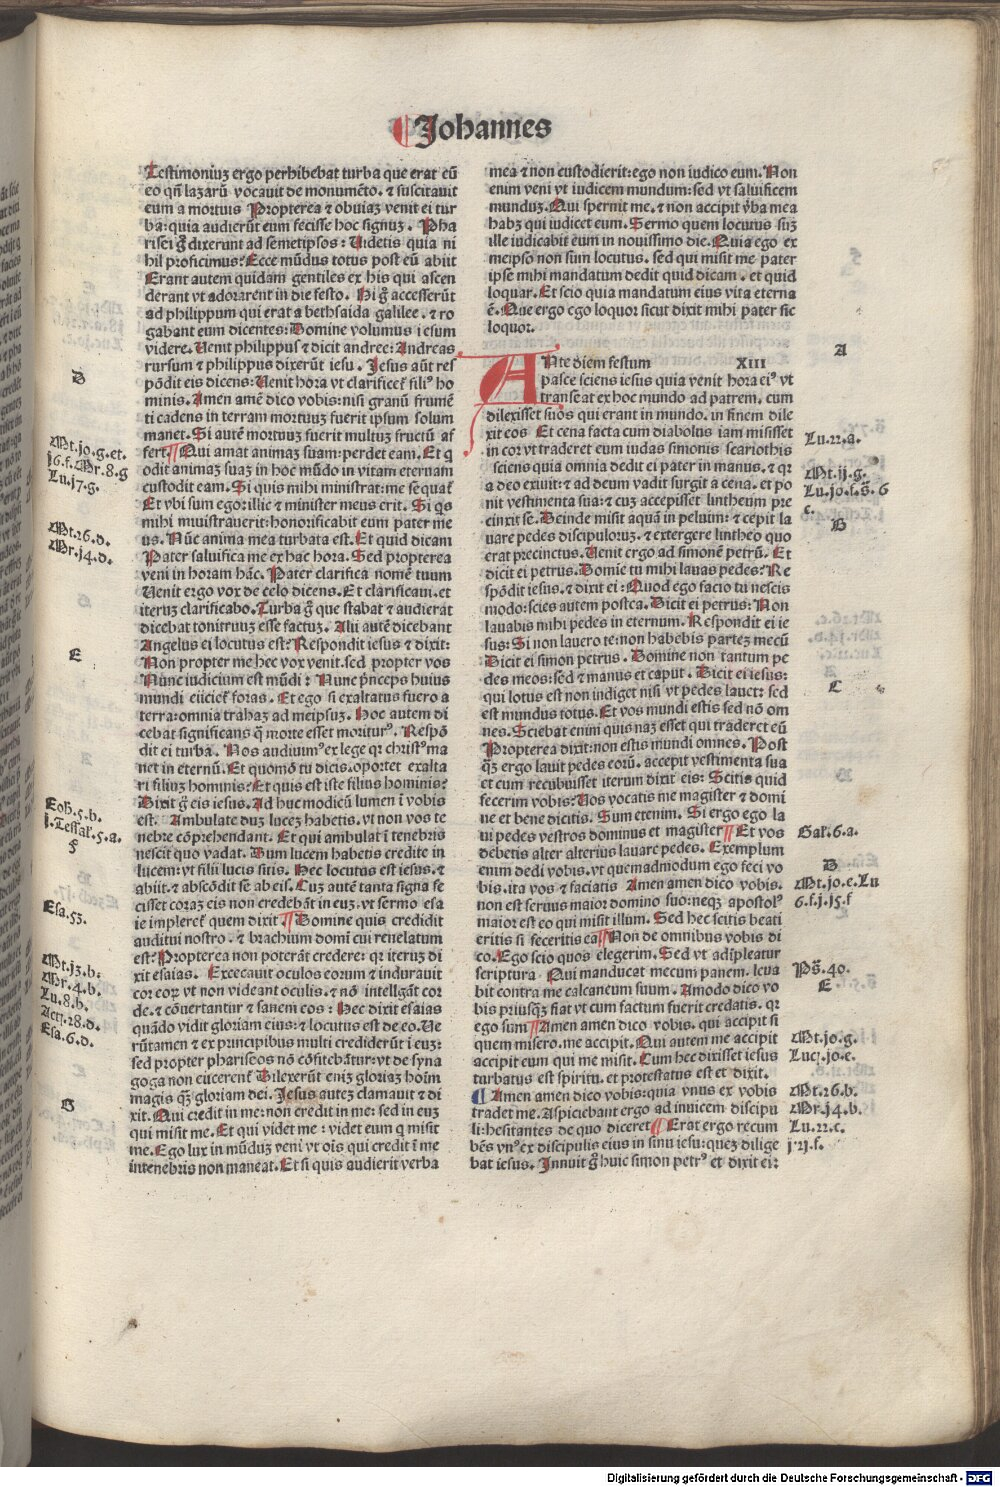 Johannes
Testimoniuz ergo perhibebat turba que erat cū
eo qñ lazarū vocauit de monumēto. ⁊ suscitauit
eum a mortuis Propterea ⁊ obuiaz venit ei tur
ba: quia audierūt eum fecisse hoc signuz. Pha
risei g̃ dixerunt ad semetipsos: Uidetis quia ni
hil proficimus? Ecce mūdus totus post eū abiit
Erant autem quidam gentiles ex his qui ascen
derant vt adorarent in die festo. Hi g̃ accesserūt
ad philippum qui erat a bethsaida galilee. ⁊ ro
gabant eum dicentes: Domine volumus iesum
videre. Uenit philippus ⁊ dicit andree: Andreas
rursum ⁊ philippus dixerūt iesu. Jesus aūt res
pōdit eis dicens: Uenit hora vt clarificet̃ fili⁹ ho
minis. Amen amē dico vobis: nisi granū frumē
ti cadens in terram mortuuz fuerit ipsum solum
manet. Si autē mortuuz fuerit multuz fructū af
fert. Qui amat animaz suam: perdet eam. Et q
odit animaz suaz in hoc mūdo in vitam eternam
custodit eam. Si quis mihi ministrat: me sequat̃
Et vbi sum ego: illic ⁊ minister meus erit. Si q̃s
mihi muistrauerit: honorificabit eum pater me
us. Nūc anima mea turbata est. Et quid dicam
Pater saluifica me ex hac hora. Sed propterea
veni in horam hāc. Pater clarifica nomē tuum
Uenit ergo vox de celo dicens. Et clarificaui. et
iteruz clarificabo. Turba g̃ que stabat ⁊ audierat
dicebat tonitruuz esse factuz. Alii autē dicebant
Angelus ei locutus est? Respondit iesus ⁊ dixit:
Non propter me hec vox venit. sed propter vos
Nunc iudicium est mūdi: Nunc p̃nceps huius
mundi eiiciet̃ foras. Et ego si exaltatus fuero a
terra: omnia trahaz ad meipsuz. Hoc autem di
cebat significans q̃ morte esset moritur⁹. Respō
dit ei turba. Nos audiuim⁹ ex lege qr christ⁹ ma
net in eternū. Et quomō tu dicis. oportet exalta
ri filiuz hominis? Et quis est iste filius hominis?
Dixit g̃ eis iesus. Ad huc modicū lumen ī vobis
est. Ambulate duz lucez habetis. vt non vos te
nebre cōprehendant. Et qui ambulat ī tenebris
nescit quo vadat. Dum lucem habetis credite in
lucem: vt filii lucis sitis. Hec locutus est iesus. ⁊
abiit. ⁊ abscōdit se ab eis. Cuz autē tanta signa fe
cisset coraz eis non credebāt in euz. vt sermo esa
ie impleret̃ quem dixit. Domine quis credidit
auditui nostro. ⁊ brachium domī cui reuelatum
est? Propterea non poterāt credere: qr iteruz di
xit esaias. Excecauit oculos eorum ⁊ indurauit
cor eoꝝ vt non videant oculis. ⁊ nō intellgāt cor
de. ⁊ cōuertantur ⁊ sanem eos: Hec dixit esaias
quādo vidit gloriam eius: ⁊ locutus est de eo. Ue
rūtamen ⁊ ex principibus multi crediderūt ī euz:
sed propter phariseos nō cōfitebātur: vt de syna
goga non eiicerent̃ Dilexerūt eniz gloriaz hoīm
magis q̃z gloriam dei. Jesus autez clamauit ⁊ di
xit. Qui credit in me: non credit in me: sed in euz
qui misit me. Et qui videt me: videt eum q misit
me. Ego lux in mūduz veni vt oīs qui credit ī me
intenebris non maneat. Et si quis audierit verba
D
Mt.jo.g.et.
j6.f.Mr.8.g
Lu.j7.g.
Mt.26.d.
Mr.j4.d.
E
Eph.5.b.
j.Tessal.5.a.
F
Esa.53.
Mt.j3.b:
Mr.4.b.
Lu.8.b.
Act.28.d.
Esa.6.d.
G
mea ⁊ non custodierit: ego non iudico eum. Non
enim veni vt iudicem mundum: sed vt saluificem
munduz. Qui spernit me. ⁊ non accipit v̄ba mea
habz qui iudicet eum. Sermo quem locutus suz
ille iudicabit eum in nouissimo die. Quia ego ex
meipso non sum locutus. sed qui misit me pater
ipse mihi mandatum dedit quid dicam. et quid
loquar. Et scio quia mandatum eius vita eterna
ē. Que ergo ego loquor sicut dixit mihi pater sic
loquor.
Ante diem festum XIII
pasce sciens iesus quia venit hora ei⁹ vt
transeat ex hoc mundo ad patrem. cum
dilexisset suos qui erant in mundo. in finem dile
xit eos Et cena facta cum diabolus iam misisset
in cor vt traderet eum iudas simonis scariothis
sciens quia omnia dedit ei pater in manus. ⁊ qr
a deo exiuit: ⁊ ad deum vadit surgit a cena. et po
nit vestimenta sua: ⁊ cuz accepisset lintheum pre
cinxit se. Deinde misit aquā in peluim: ⁊ cepit la
uare pedes discipuloruz. ⁊ extergere lintheo quo
erat precinctus. Uenit ergo ad simonē petrū. Et
dicit ei petrus. Domīe tu mihi lauas pedes? Re
spōdit iesus. ⁊ dixit ei: Quod ego facio tu nescis
modo: scies autem postea. Dicit ei petrus: Non
lauabis mihi pedes in eternum. Respondit ei ie
sus: Si non lauero te: non habebis partez mecū
Dicit ei simon petrus. Domine non tantum pe
des meos: sed ⁊ manus et caput. Dicit ei iesus:
qui lotus est non indiget nisi vt pedes lauet: sed
est mundus totus. Et vos mundi estis sed nō om
nes. Sciebat enim quis naz esset qui traderet eū
Propterea dixit: non estis mundi omnes. Post
q̃z ergo lauit pedes eorū. accepit vestimenta sua
et cum recubuisset iterum dixit eis: Scitis quid
fecerim vobis? Uos vocatis me magister ⁊ domi
ne et bene dicitis. Sum etenim. Si ergo ego la
ui pedes vestros dominus et magister Et vos
debetis alter alterius lauare pedes. Exemplum
enim dedi vobis. vt quemadmodum ego feci vo
bis. ita vos ⁊ faciatis Amen amen dico vobis.
non est seruus maior domino suo: neqz apostol⁹
maior est eo qui misit illum. Sed hec scitis beati
eritis si feceritis ea Non de omnibus vobis di
co. Ego scio quos elegerim. Sed vt adīpleatur
scriptura Qui manducat mecum panem. leua
bit contra me calcaneum suum. Amodo dico vo
bis priusq̃z fiat vt cum factum fuerit credatis. qr
ego sum Amen amen dico vobis. qui accipit si
quem misero. me accipit. Qui autem me accipit
accipit eum qui me misit. Cum hec dixisset iesus
turbatus est spiritu. et protestatus est et dixit.
Amen amen dico vobis: quia vnus ex vobis
tradet me. Aspiciebant ergo ad inuicem discipu
li: hesitantes de quo diceret Erat ergo recum
bēs vn⁹ ex discipulis eius in sinu iesu: quez dilige
bat iesus. Innuit g̃ huic simon petr⁹ et dixit ei:
A
Lu.22.a.
Mt.ij.g.
Lu.jo.f.
c.
B
C
Gal.6.a.
D
Mt.jo.e.Lu
6.f.j.j5.f
Ps̄.40.
E
Mt.jo.g.
Luc.jo.e.
Mt.26.b.
Mr.j4.b.
Lu.22.c.
j.2j.f.
Digitalisierung gefördert durch die Deutsche Forschungsgemeinschaft - DFG